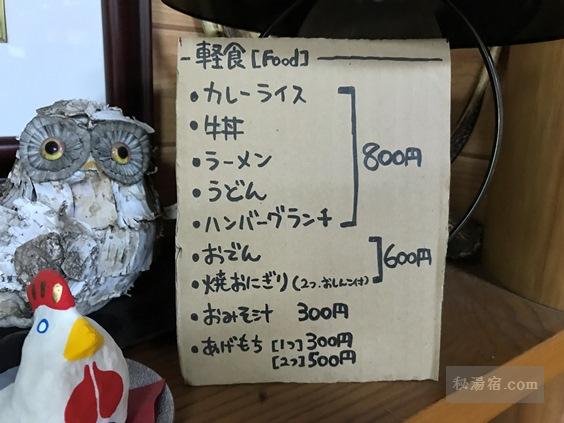 軽食[Food]
・カレーライス
・牛丼
・ラーメン
・うどん
・ハンバーグランチ
800円
・おでん
・焼おにぎり(2つ.おしんこ付)
600円
・おみそ汁 300円
・あげもち [1つ]300円
[2つ]500円
秘湯宿.com